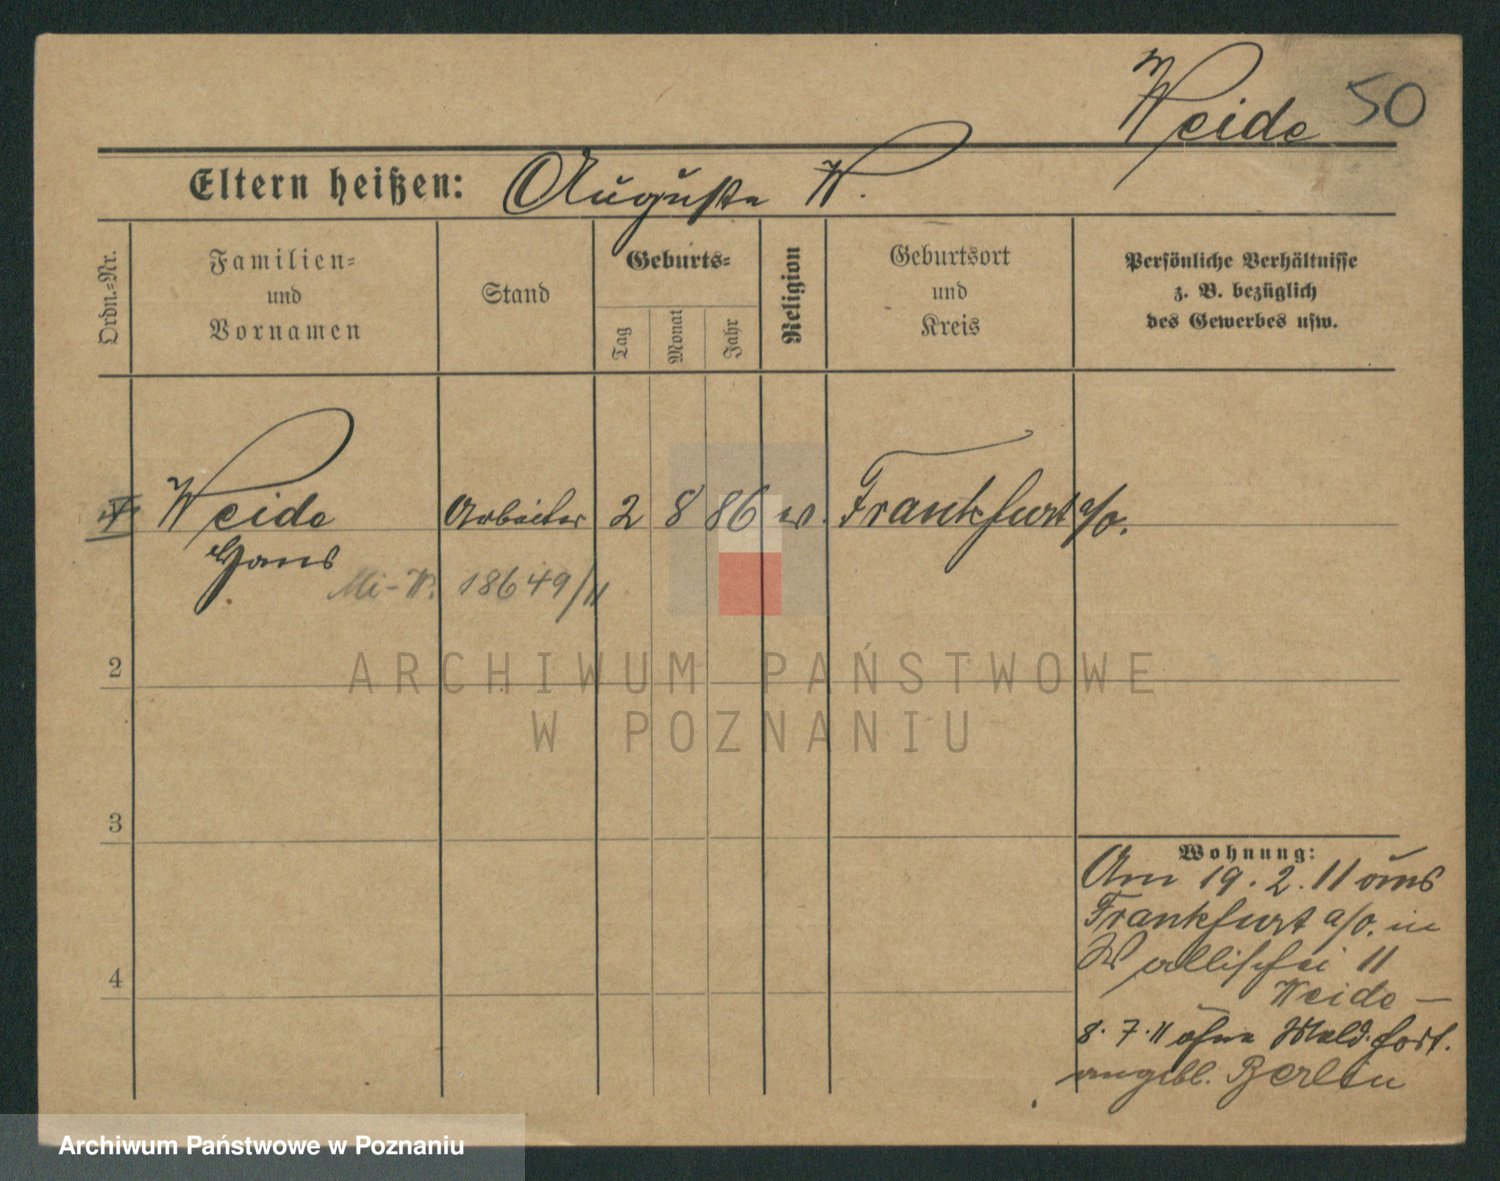 Weide 50
Eltern heißen: Auguste W.
Ordn.-Nr.
Familien- und Vornamen
Stand
Geburts-
Tag
Monat
Jahr
Religion
Geburtsort und Kreis
Persönliche Verhältnisse
z. B. bezüglich
des Gewerbes usw.
Weide Arbeiter 2 8 86 ev. Frankfurt a/O.
Hans
18649/11
ARCHIWUM PAŃSTWOWE
W POZNANIU
2
3
4
Wohnung:
Am 19.2.11 aus
Frankfurt a/O. in
Wallischei 11
Weide –
8.7.11 ohne Meld. fort.
angebl. Berlin
Archiwum Państwowe w Poznaniu